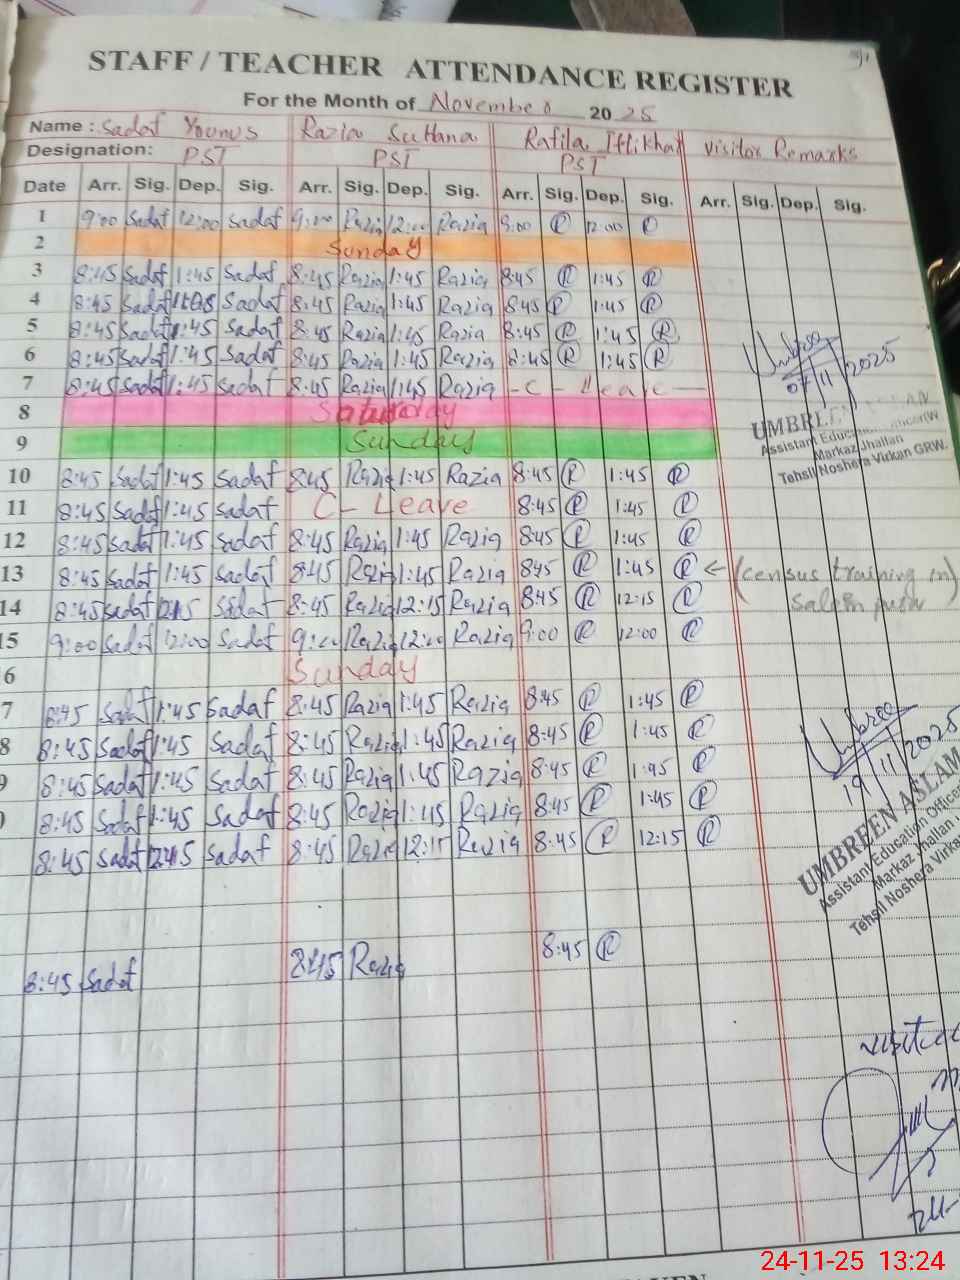 STAFF / TEACHER ATTENDANCE REGISTER
For the Month of November 2025
Name : Sadaf Younus Razia Sultana Rafila Iftikhar Visitor Remarks
Designation: PST PST PST
Date Arr. Sig. Dep. Sig. Arr. Sig. Dep. Sig. Arr. Sig. Dep. Sig. Arr. Sig. Dep. Sig.
1 9:00 Sadaf 12:00 Sadaf 9:00 Razia 12:00 Razia 9:00 R 12:00 R
2 Sunday
3 8:45 Sadaf 1:45 Sadaf 8:45 Razia 1:45 Razia 8:45 R 1:45 R
4 8:45 Sadaf Sadaf 8:45 Razia 1:45 Razia 8:45 R 1:45 R
5 8:45 Sadaf 1:45 Sadaf 8:45 Razia 1:45 Razia 8:45 R 1:45 R
6 8:45 Sadaf 1:45 Sadaf 8:45 Razia 1:45 Razia 8:45 R 1:45 R
7 8:45 Sadaf 1:45 Sadaf 8:45 Razia 1:45 Razia - C - Leave -
07/11/2025
8 Saturday
UMBREEN
9 Sunday
Assistant Education
Markaz Jhallan
Tehsil Noshera Virkan GRW.
10 8:45 Sadaf 1:45 Sadaf 8:45 Razia 1:45 Razia 8:45 R 1:45 R
11 8:45 Sadaf 1:45 Sadaf C - Leave 8:45 R 1:45 R
12 8:45 Sadaf 1:45 Sadaf 8:45 Razia 1:45 Razia 8:45 R 1:45 R
13 8:45 Sadaf 1:45 Sadaf 8:45 Razia 1:45 Razia 8:45 R 1:45 R ← (census training in
14 8:45 Sadaf Sadaf 8:45 Razia 12:15 Razia 8:45 R 12:15 R
15 9:00 Sadaf 12:00 Sadaf 9:00 Razia 12:00 Razia 9:00 R 12:00 R
6 Sunday
7 8:45 Sadaf 1:45 Sadaf 8:45 Razia 1:45 Razia 8:45 R 1:45 R
8 8:45 Sadaf 1:45 Sadaf 8:45 Razia 1:45 Razia 8:45 R 1:45 R
8:45 Sadaf 1:45 Sadaf 8:45 Razia 1:45 Razia 8:45 R 1:45 R
19/11/2025
8:45 Sadaf 1:45 Sadaf 8:45 Razia 1:45 Razia 8:45 R 1:45 R
8:45 Sadaf Sadaf 8:45 Razia 12:15 Razia 8:45 R 12:15 R
UMBREEN ASLAM
Assistant Education Officer
Markaz Jhallan
Tehsil Noshera Virkan
8:45 Sadaf 8:45 Razia 8:45 R
visited
24-11-25 13:24